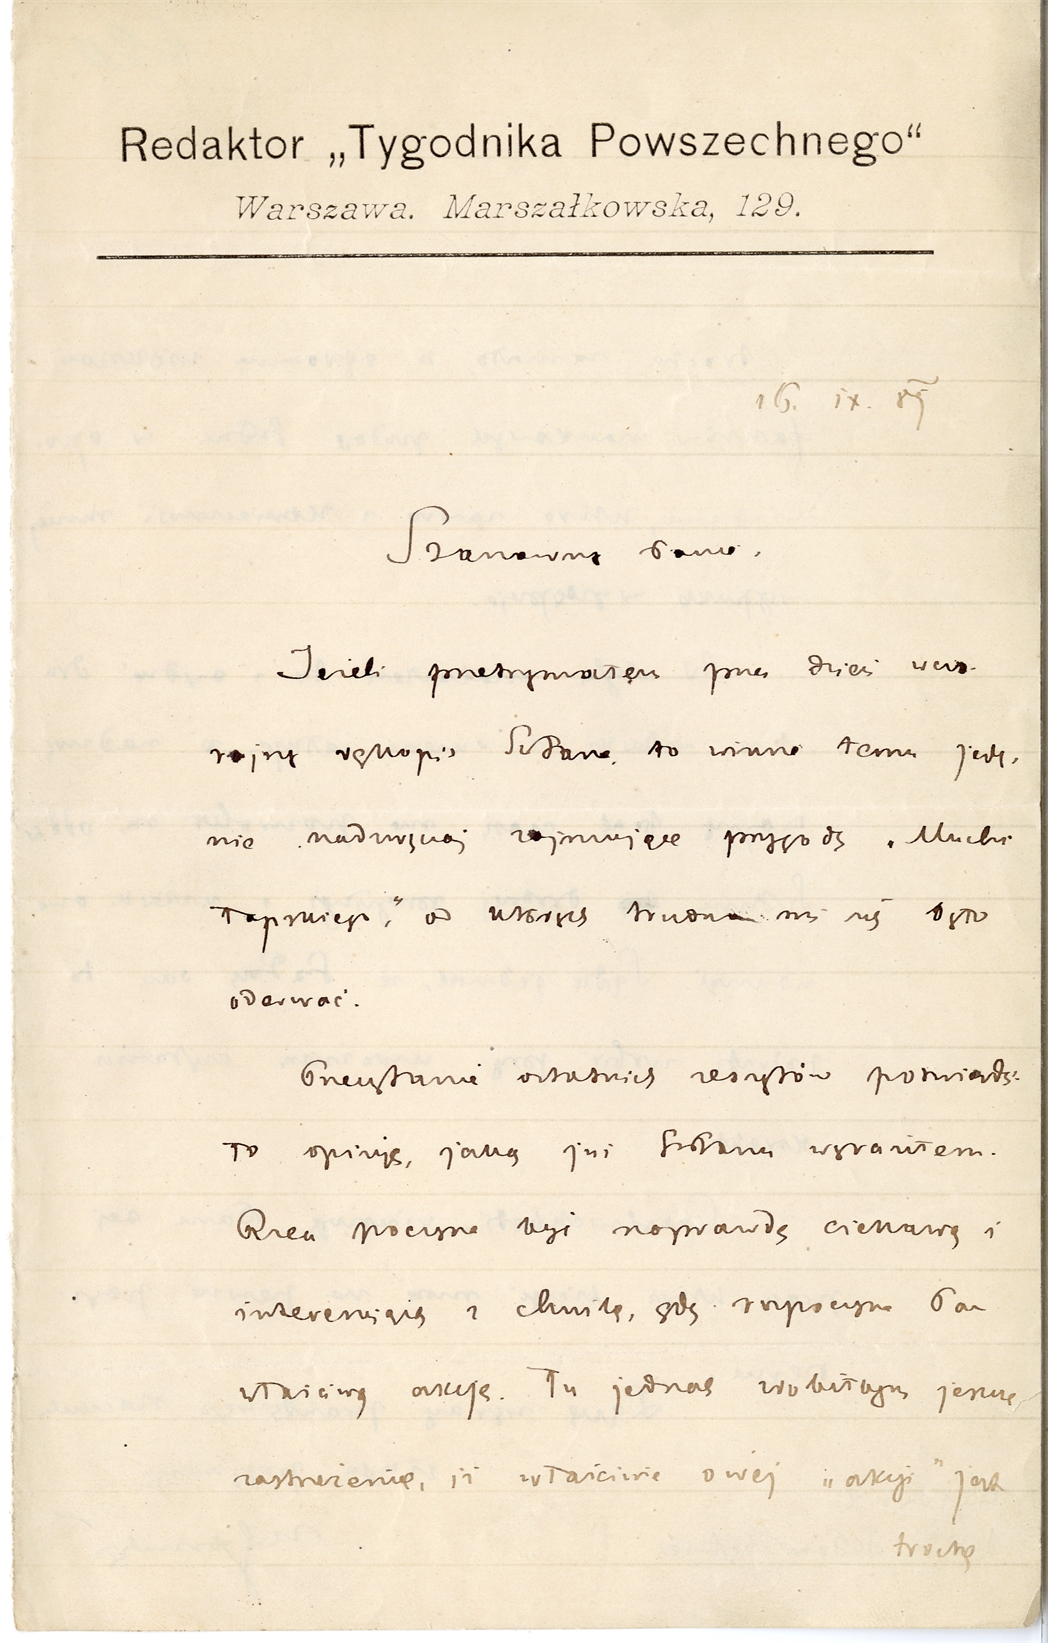 Redaktor „Tygodnika Powszechnego“
Warszawa. Marszałkowska, 129.
16. IX. 87
Szanowny Panie.
Jeżeli przetrzymałem przez dzień wczo-
rajszy rękopis Sz Pana, to winne temu jedy-
nie nadzwyczaj zajmujące przygody „Muchi
Łapskiego", od których trudno mi się było
oderwać.
Przeczytanie ostatnich zeszytów potwierdzi-
ło opinię, jaką już Sz Panu wyraziłem.
Rzecz poczyna być naprawdę ciekawą i
interesującą z chwilą, gdy rozpoczyna Pan
właściwą akcję. Tu jednak zrobiłbym jeszcze
zastrzeżenie, iż właściwie owej „akcji" jest
trochę